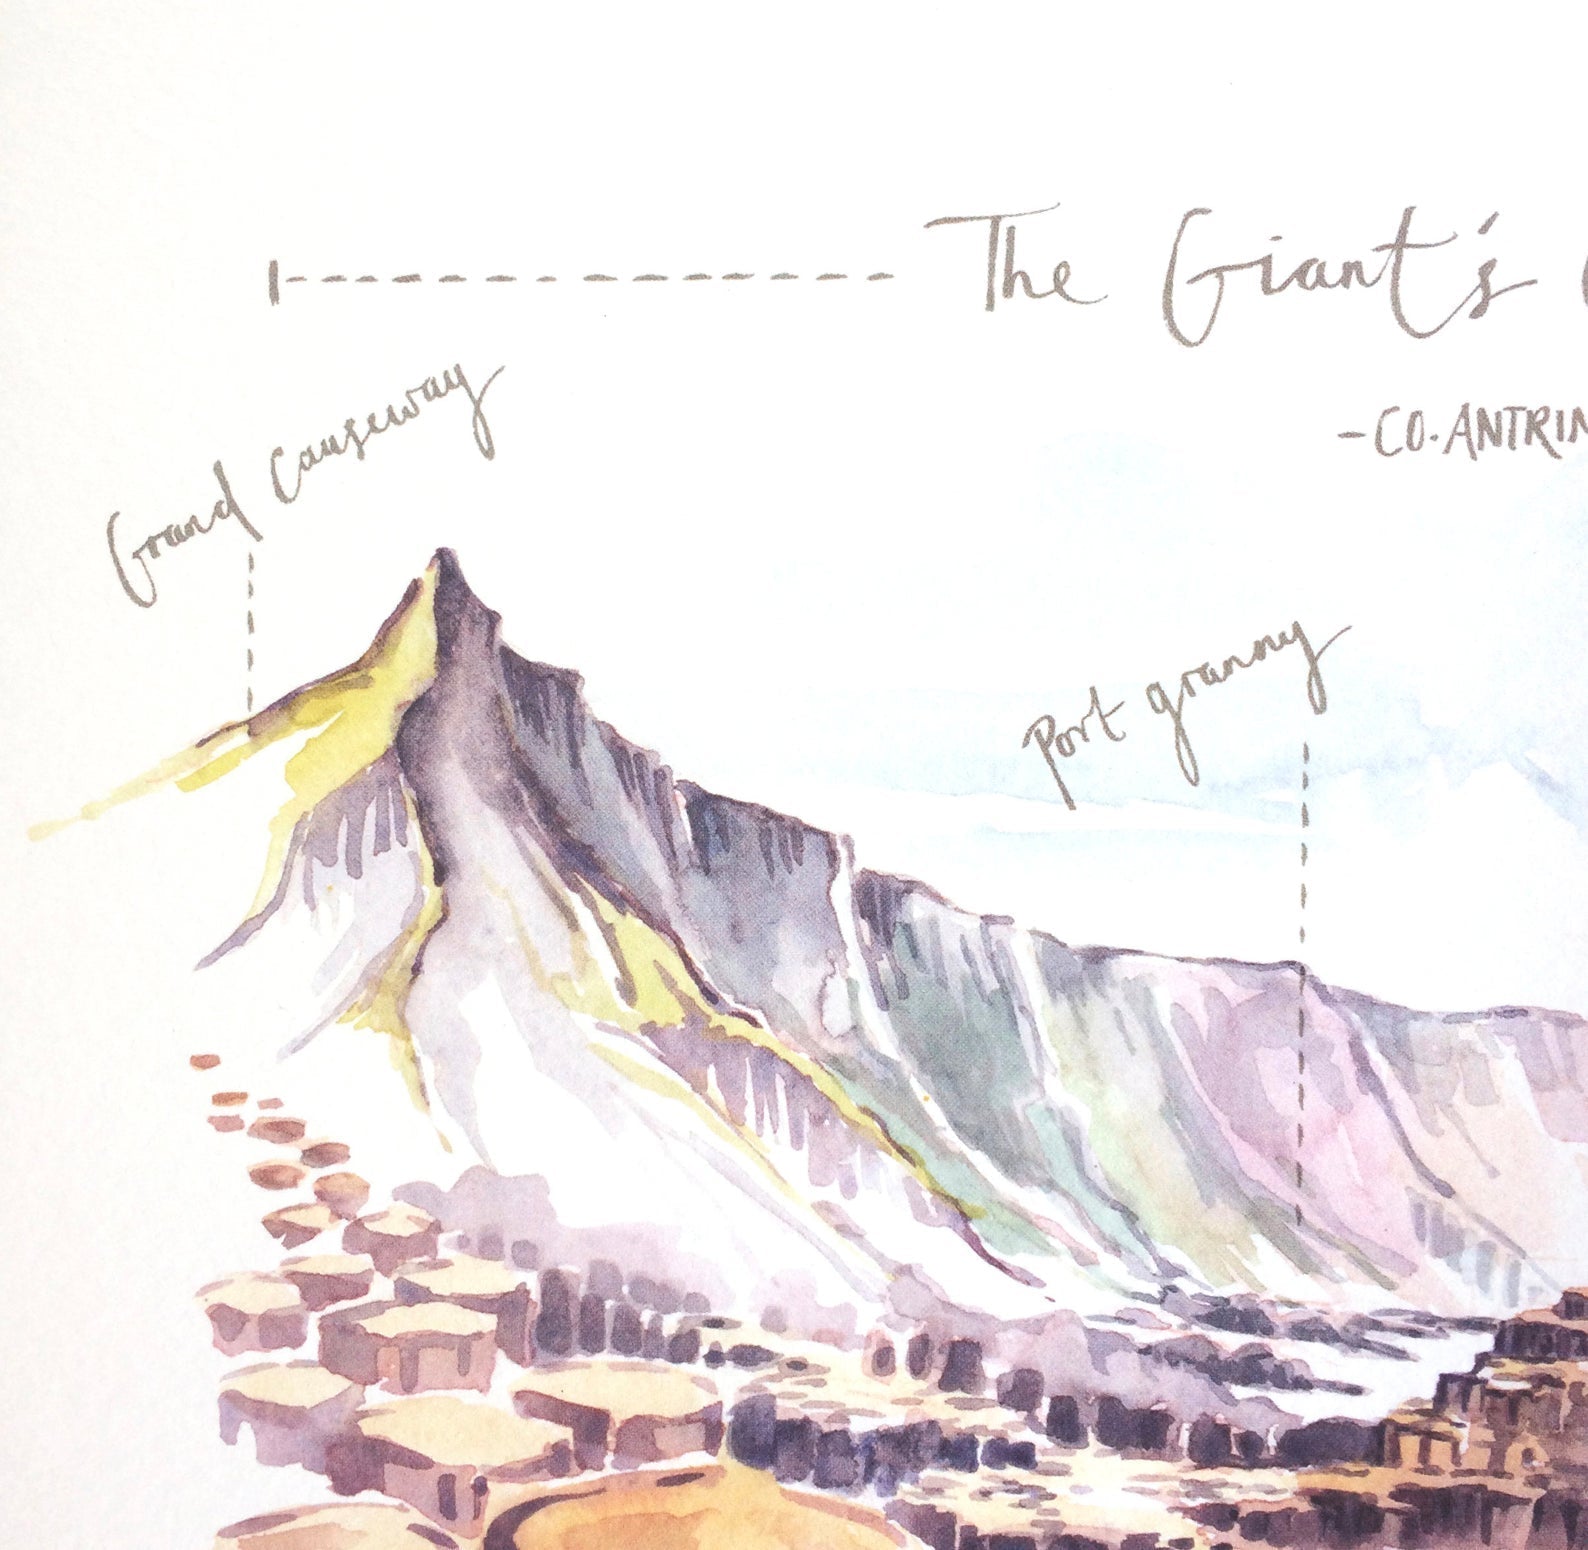 The Giant's
-CO. ANTRIM
Grand Causeway
Port granny